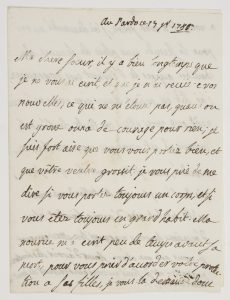 Au Pardo ce 17
Ma chere sœur, il y a bien longtems que
je ne vous ai écrit, et que je n'ai recue de vos
nouvelles, ce qui ne m'etone pas, quand on
est grosse on a de courage pour rien; je
suis fort aise que vous vous portez bien, et
que votre ventre grossit, je vous prie de me
dire si vous portez toujours un corps, et si
vous etez toujours en grand habit. Ma
nourice m'a ecrit peu de tems avant sa
mort, pour vous prier d'accorder votre protec-
tion a ses filles, je vous la demande donc